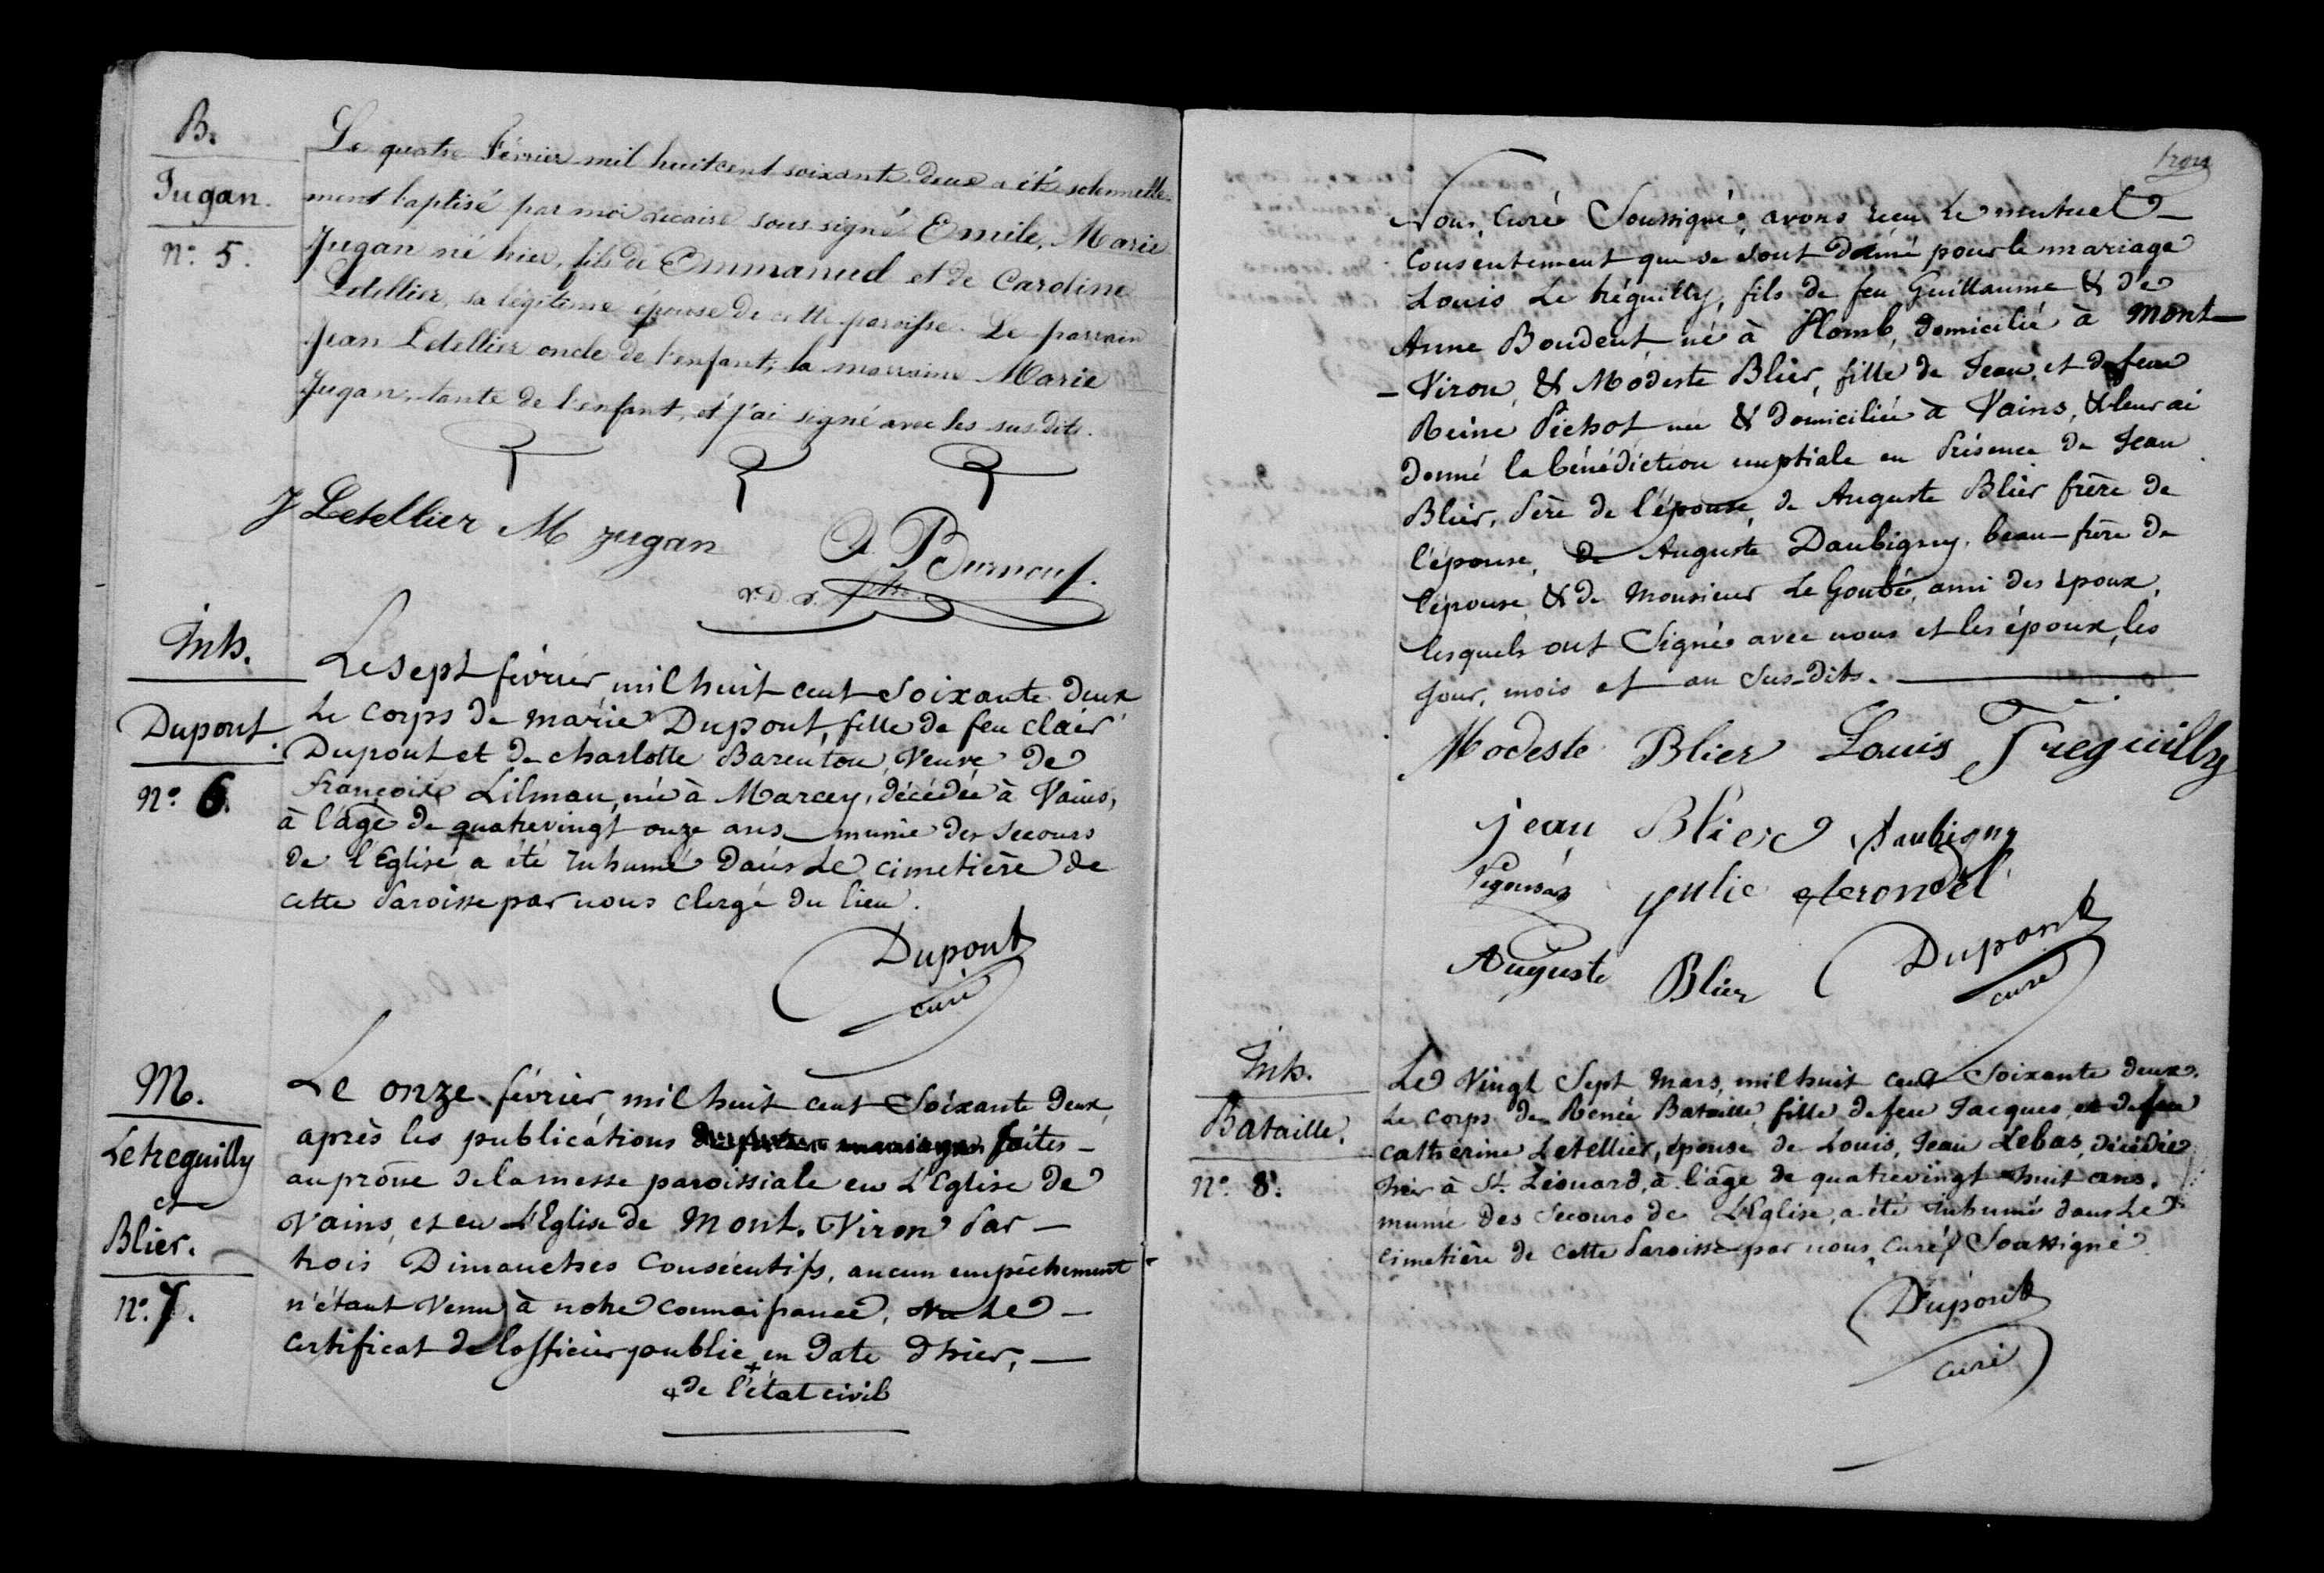 B.
Jugan.
n°. 5.
Le quatre Février mil huit cent soixante-deux a été solennelle-
ment baptisé par moi vicaire sous signé Emile, Marie
Jugan né hier, fils de Emmanuel et de Caroline
Letellier, sa légitime épouse de cette paroisse. Le parrain
Jean Letellier oncle de l'enfant, la marraine Marie
Jugan, tante de l'enfant, et j'ai signé avec les sus dits.
J Letellier M jugan
Burnouf.
v. D. s. ptre
Inh.
Dupont.
n°. 6.
Le sept février mil huit cent soixante deux
Le corps de marie Dupont, fille de feu clair
Dupont et de charlotte Barenton, Veuve de
françois Lilman, née à Marcey, décédée à Vains,
à l'âge de quatrevingt onze ans munie des secours
de l'Eglise a été Inhumé dans Le cimetière de
cette Paroisse par nous clergé du lieu.
Dupont
curé
M.
Letreguilly
et
Blier.
n°. 7.
Le onze février mil huit cent Soixante deux
après les publications du futur mariage faites –
au prône de la messe paroissiale en L'Eglise de
Vains, et en L'Eglise de Mont. Viron Par –
trois Dimanches Consécutifs, aucun empêchement
n'étant Venu à notre connaissance, Vu Le –
certificat de l'officier public + en date d'hier, –
+ de l'état civil
trois
Nous, Curé Soussigné, avons reçu Le mutuel –
Consentement que se sont donné pour le mariage
Louis Le tréguilly, fils de feu Guillaume & de
Anne Boudent, né à Plomb, domicilié à Mont
– Viron, & Modeste Blier, fille de Jean, et de feue
Reine Pichot née & domiciliée à Vains, & leur ai
donné la bénédiction nuptiale en Présence de Jean
Blier, Père de l'épouse, de Auguste Blier frère de
l'épouse, de Auguste Daubigny, beau-frère de
l'épouse & de Monsieur Le Goubé, ami des époux,
lesquels ont Signé avec nous et les époux, les
Jour, mois et an Sus-dits.
Modeste Blier Louis Treguilly
jean Blier Daubigny
julie
Auguste Blier Dupont
curé
Inh.
Bataille.
n°. 8.
Le Vingt Sept Mars, mil huit cent Soixante deux.
Le corps de Renée Bataille, fille de feu Jacques, et de feue
Cathérine Letellier, épouse de Louis, Jean Lebas, décédée
hier à St. Léonard, à l'âge de quatrevingt huit ans,
munie des Secours de L'Eglise, a été Inhumé dans Le
cimetière de cette Paroisse par nous, Curé Soussigné.
Dupont
curé